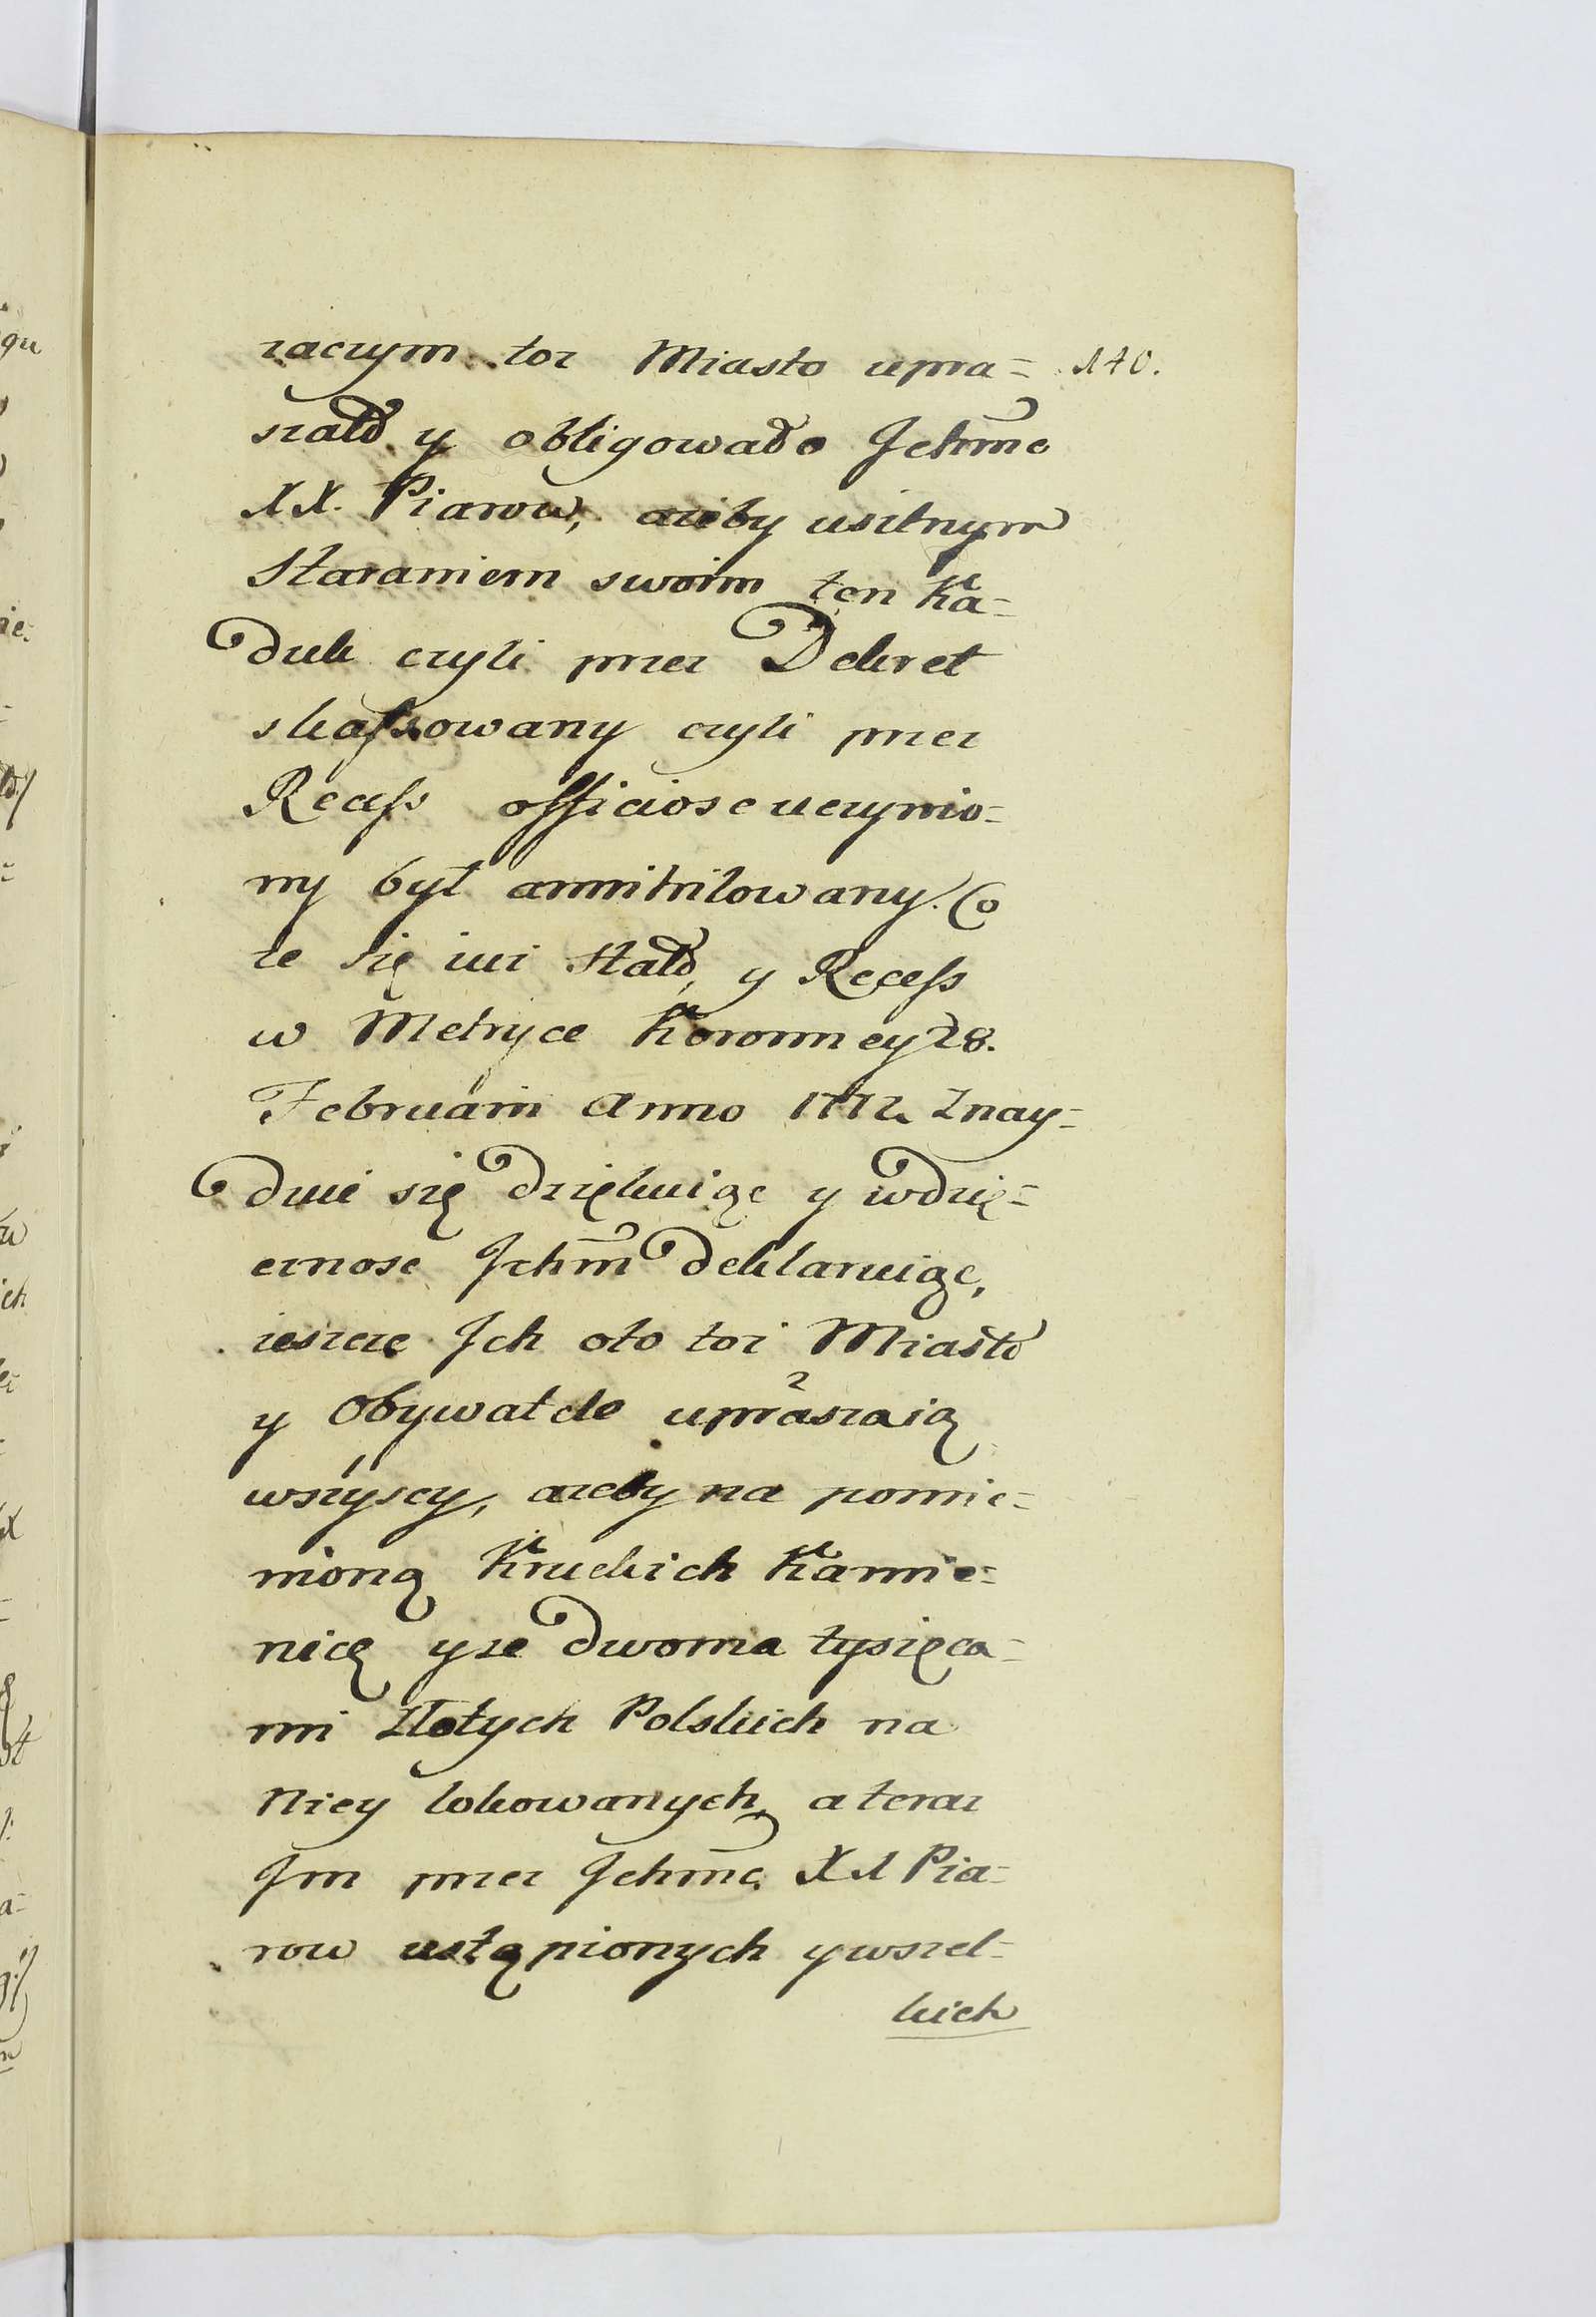 zaczym toz Miasto upra= 140.
szało y obligowało Jchmc
XX. Piarow, azeby usilnym
staraniem swoim ten Ka=
duk czyli przez Dekret
skassowany czyli przez
Recess officiose uczynio=
ny był annihilowany. Co
ze się iuz stało, y Recess
w Metryce Koronney 28.
Februarii Anno 1772. Znay=
duie się dziękuiąc y wdzię=
cznosc Jchm deklaruiąc,
ieszcze Jch oto toz Miasto
y Obywatele upraszaią
wszyscy, azeby na pomie=
nioną Kruckich Kamie=
nicę y ze dwoma tysięca=
mi Złotych Polskich na
Niey lokowanych, a teraz
Jm przez Jchmc XX Pia=
row ustąpionych y wszel=
kich